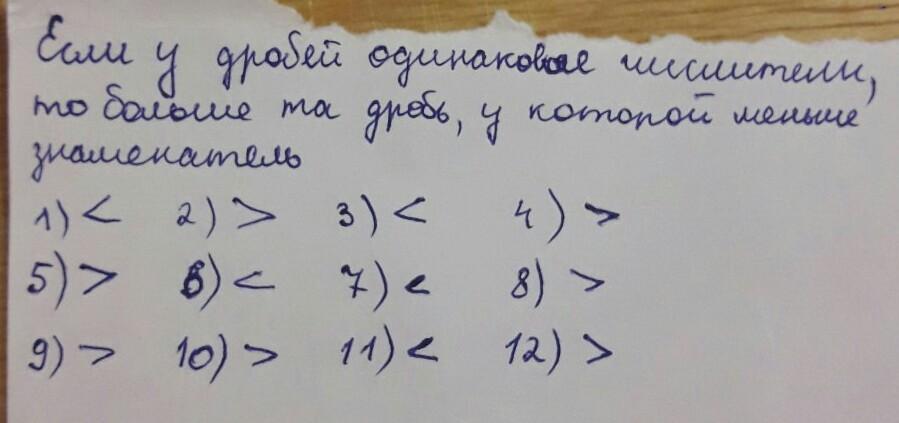 Если у дробей одинаковые числители,
то больше та дробь, у которой меньше
знаменатель
1) < 2) > 3) < 4) >
5) > 6) < 7) < 8) >
9) > 10) > 11) < 12) >